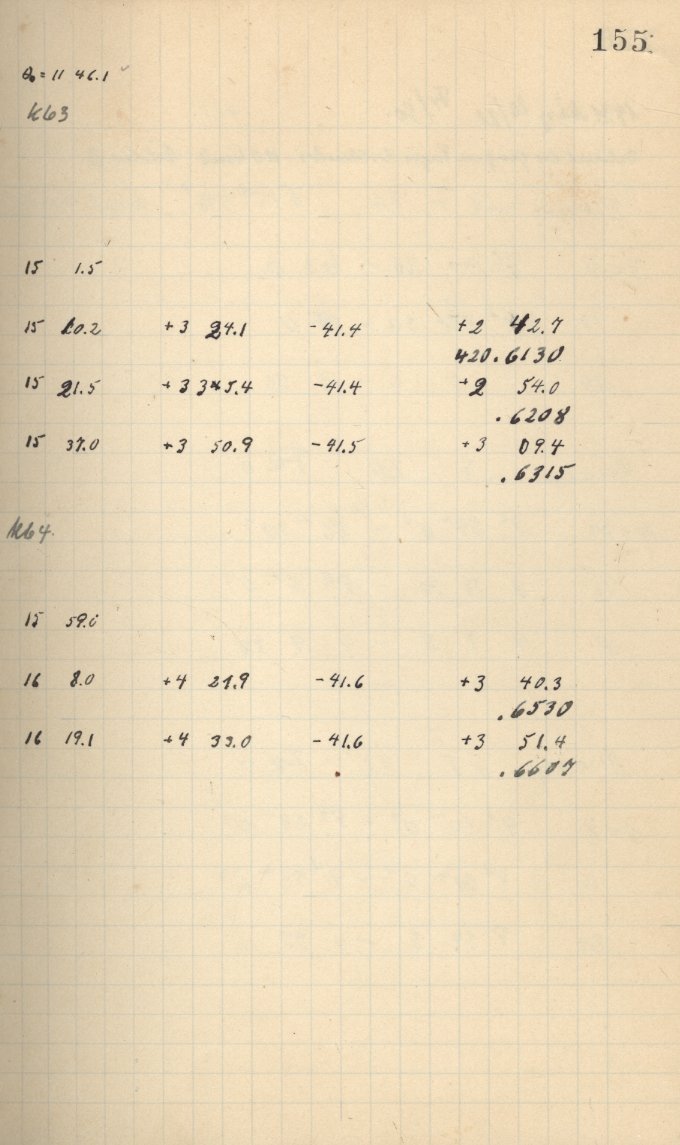 155
θ₀ = 11 46.1
K63
15 1.5
15 10.2 +3 24.1 -41.4 +2 42.7
420.6130
15 21.5 +3 35.4 -41.4 +2 54.0
.6208
15 37.0 +3 50.9 -41.5 +3 09.4
.6315
K64
15 59.0
16 8.0 +4 21.9 -41.6 +3 40.3
.6530
16 19.1 +4 33.0 -41.6 +3 51.4
.6607